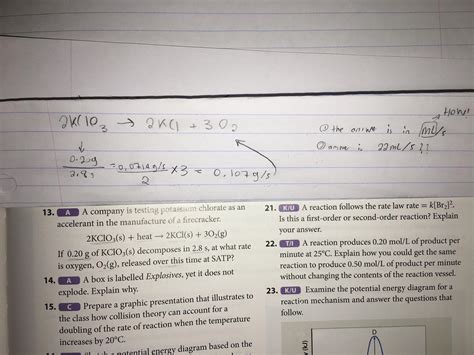 HOW!
2KClO3 → 2KCl + 3O2
① the answe is in mL/s
0.20g
2.8s
= 0.0714g/s
2
×3 = 0.107g/s
② answe is 22mL/s
13. A A company is testing potassium chlorate as an
accelerant in the manufacture of a firecracker.
2KClO3(s) + heat → 2KCl(s) + 3O2(g)
If 0.20 g of KClO3(s) decomposes in 2.8 s, at what rate
is oxygen, O2(g), released over this time at SATP?
14. A A box is labelled Explosives, yet it does not
explode. Explain why.
15. C Prepare a graphic presentation that illustrates to
the class how collision theory can account for a
doubling of the rate of reaction when the temperature
increases by 20°C.
potential energy diagram based on the
21. K/U A reaction follows the rate law rate = k[Br2]2.
Is this a first-order or second-order reaction? Explain
your answer.
22. T/I A reaction produces 0.20 mol/L of product per
minute at 25°C. Explain how you could get the same
reaction to produce 0.50 mol/L of product per minute
without changing the contents of the reaction vessel.
23. K/U Examine the potential energy diagram for a
reaction mechanism and answer the questions that
follow.
D
(kJ)